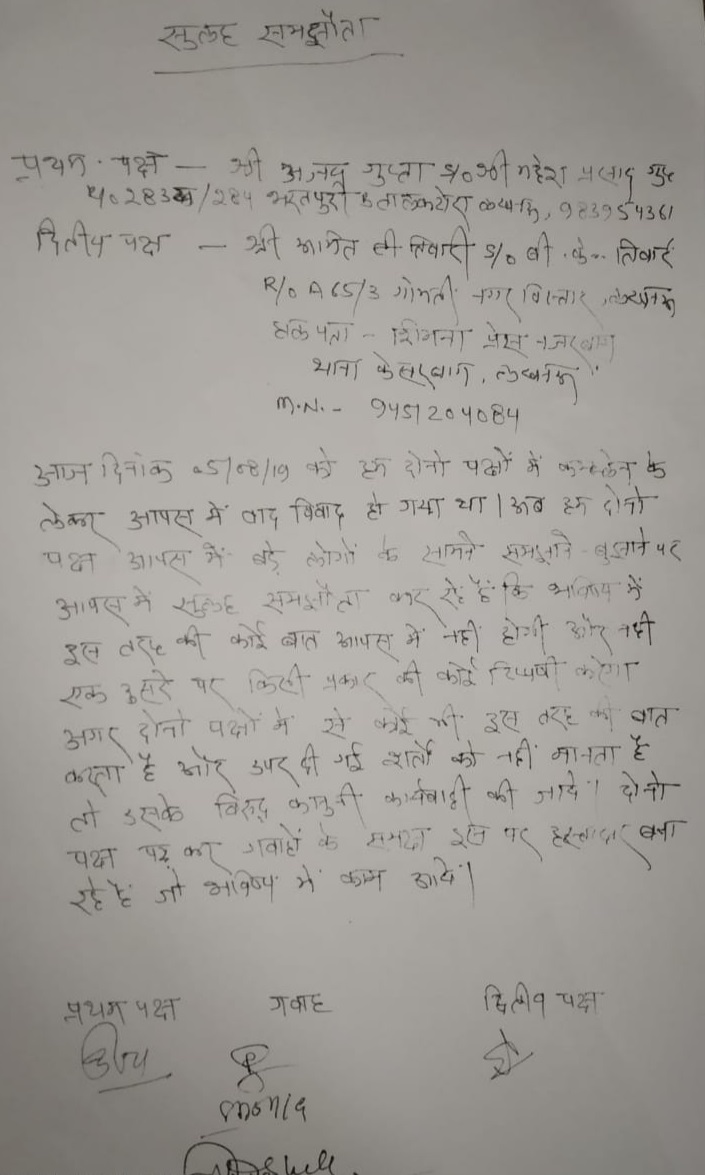 सुलह समझौता
प्रथम पक्ष — श्री गुप्ता S/o श्री महेश प्रसाद
283 /284 भरतपुरी लखनऊ, 983954361
द्वितीय पक्ष — श्री तिवारी S/o बी. के. तिवारी
R/o A 65/3 गोमती नगर विस्तार, लखनऊ
पता - प्रेस नजरबाग
थाना केसरबाग, लखनऊ
M.N. - 9451204084
आज दिनांक 05/08/19 को हम दोनो पक्षों में के
लेकर आपस में वाद विवाद हो गया था। अब हम दोनो
पक्ष आपस में बड़े लोगों के सामने समझाने-बुझाने पर
आपस में सुलह समझौता कर रहे हैं कि भविष्य में
इस तरह की कोई बात आपस में नहीं होगी और नही
एक दुसरे पर किसी प्रकार की कोई टिप्पणी करेगा
अगर दोनो पक्षों में से कोई भी इस तरह की बात
करता है और उपर दी गई शर्तो को नहीं मानता है
तो उसके विरुद्ध कानुनी कार्यवाही की जाये। दोनो
पक्ष पढ़ कर गवाहों के समक्ष इस पर हस्ताक्षर बना
रहे हैं जो भविष्य में काम आये।
प्रथम पक्ष गवाह द्वितीय पक्ष